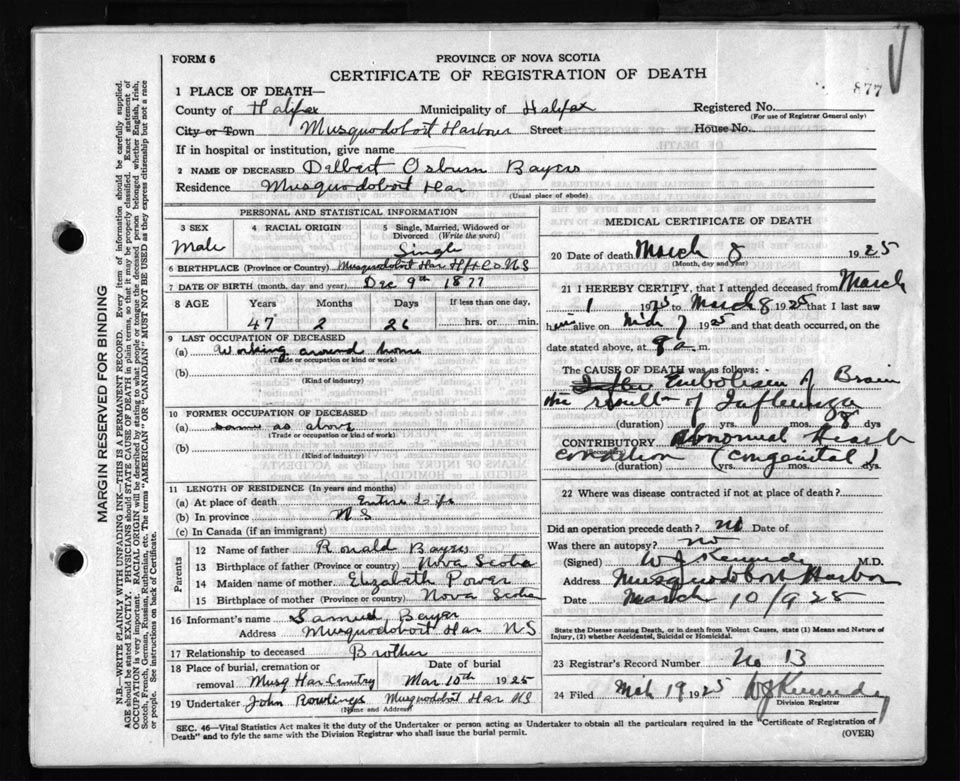 FORM 6
PROVINCE OF NOVA SCOTIA
CERTIFICATE OF REGISTRATION OF DEATH
877
1 PLACE OF DEATH—
County of Halifax Municipality of Halifax Registered No.
(For use of Registrar General only)
City or Town Musquodoboit Harbour Street House No.
If in hospital or institution, give name
2 NAME OF DECEASED Delbert Osburn Bayers
Residence Musquodoboit Har
(Usual place of abode)
PERSONAL AND STATISTICAL INFORMATION
3 SEX 4 RACIAL ORIGIN 5 Single, Married, Widowed or
Divorced (Write the word)
Male Single
6 BIRTHPLACE (Province or Country) Musquodoboit Har Hfx Co NS
7 DATE OF BIRTH (month, day and year) Dec 9th 1877
8 AGE Years Months Days If less than one day,
47 2 26 hrs. or min.
9 LAST OCCUPATION OF DECEASED
(a) Working around home
(Trade or occupation or kind of work)
(b)
(Kind of industry)
10 FORMER OCCUPATION OF DECEASED
(a) same as above
(Trade or occupation or kind of work)
(b)
(Kind of industry)
11 LENGTH OF RESIDENCE (In years and months)
(a) At place of death Entire Life
(b) In province NS
(c) In Canada (if an immigrant)
Parents
12 Name of father Ronald Bayers
13 Birthplace of father (Province or country) Nova Scotia
14 Maiden name of mother Elizabeth Power
15 Birthplace of mother (Province or country) Nova Scotia
16 Informant's name Samuel Bayer
Address Musquodoboit Har NS
17 Relationship to deceased Brother
18 Place of burial, cremation or Date of burial
removal Musq Har Cemetry Mar 10th 1925
19 Undertaker John Rowlings Musquodoboit Har NS
(Name and Address)
MEDICAL CERTIFICATE OF DEATH
20 Date of death March 8 1925
(Month, day and year)
21 I HEREBY CERTIFY, that I attended deceased from March
1 1925 to March 8 1925 that I last saw
him alive on Mch 7 1925 and that death occurred, on the
date stated above, at 8 a. m.
The CAUSE OF DEATH was as follows:
Embolism of Brain
the result of Influenza
(duration) yrs. mos. 8 dys
CONTRIBUTORY Abnormal Heart
condition (congenital)
(duration) yrs. mos. dys.
22 Where was disease contracted if not at place of death?
Did an operation precede death? no Date of
Was there an autopsy? no
(Signed) WJ Kennedy M.D.
Address Musquodoboit Harbor
Date March 10 1925
State the Disease causing Death, or in death from Violent Causes, state (1) Means and Nature of
Injury, (2) whether Accidental, Suicidal or Homicidal.
23 Registrar's Record Number No 13
24 Filed Mch 19 1925 WJ Kennedy
Division Registrar
SEC. 46—Vital Statistics Act makes it the duty of the Undertaker or person acting as Undertaker to obtain all the particulars required in the "Certificate of Registration of
Death" and to fyle the same with the Division Registrar who shall issue the burial permit.
(OVER)
MARGIN RESERVED FOR BINDING
N.B.—WRITE PLAINLY WITH UNFADING INK—THIS IS A PERMANENT RECORD. Every item of information should be carefully supplied.
AGE should be stated EXACTLY. PHYSICIANS should STATE CAUSE OF DEATH in plain terms, so that it may be properly classified. Exact statement of
OCCUPATION is very important. RACIAL ORIGIN will be described by stating to what people or tongue the deceased person belonged whether English, Irish,
Scotch, French, German, Russian, Ruthenian, etc. The terms "AMERICAN" or "CANADIAN" MUST NOT BE USED as they express citizenship but not a race
or people. See instructions on back of Certificate.